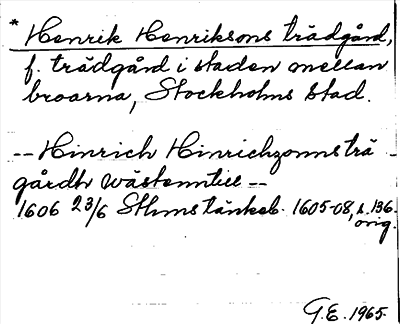 * Henrik Henriksons trädgård,
f. trädgård i staden mellan
broarna, Stockholms stad.
-- Hinrich Hinrichzonns trä-
gårdh wästenntill --
1606 23/6 Sthms tänkeb. 1605-08, s. 136.
orig.
G.E. 1965.